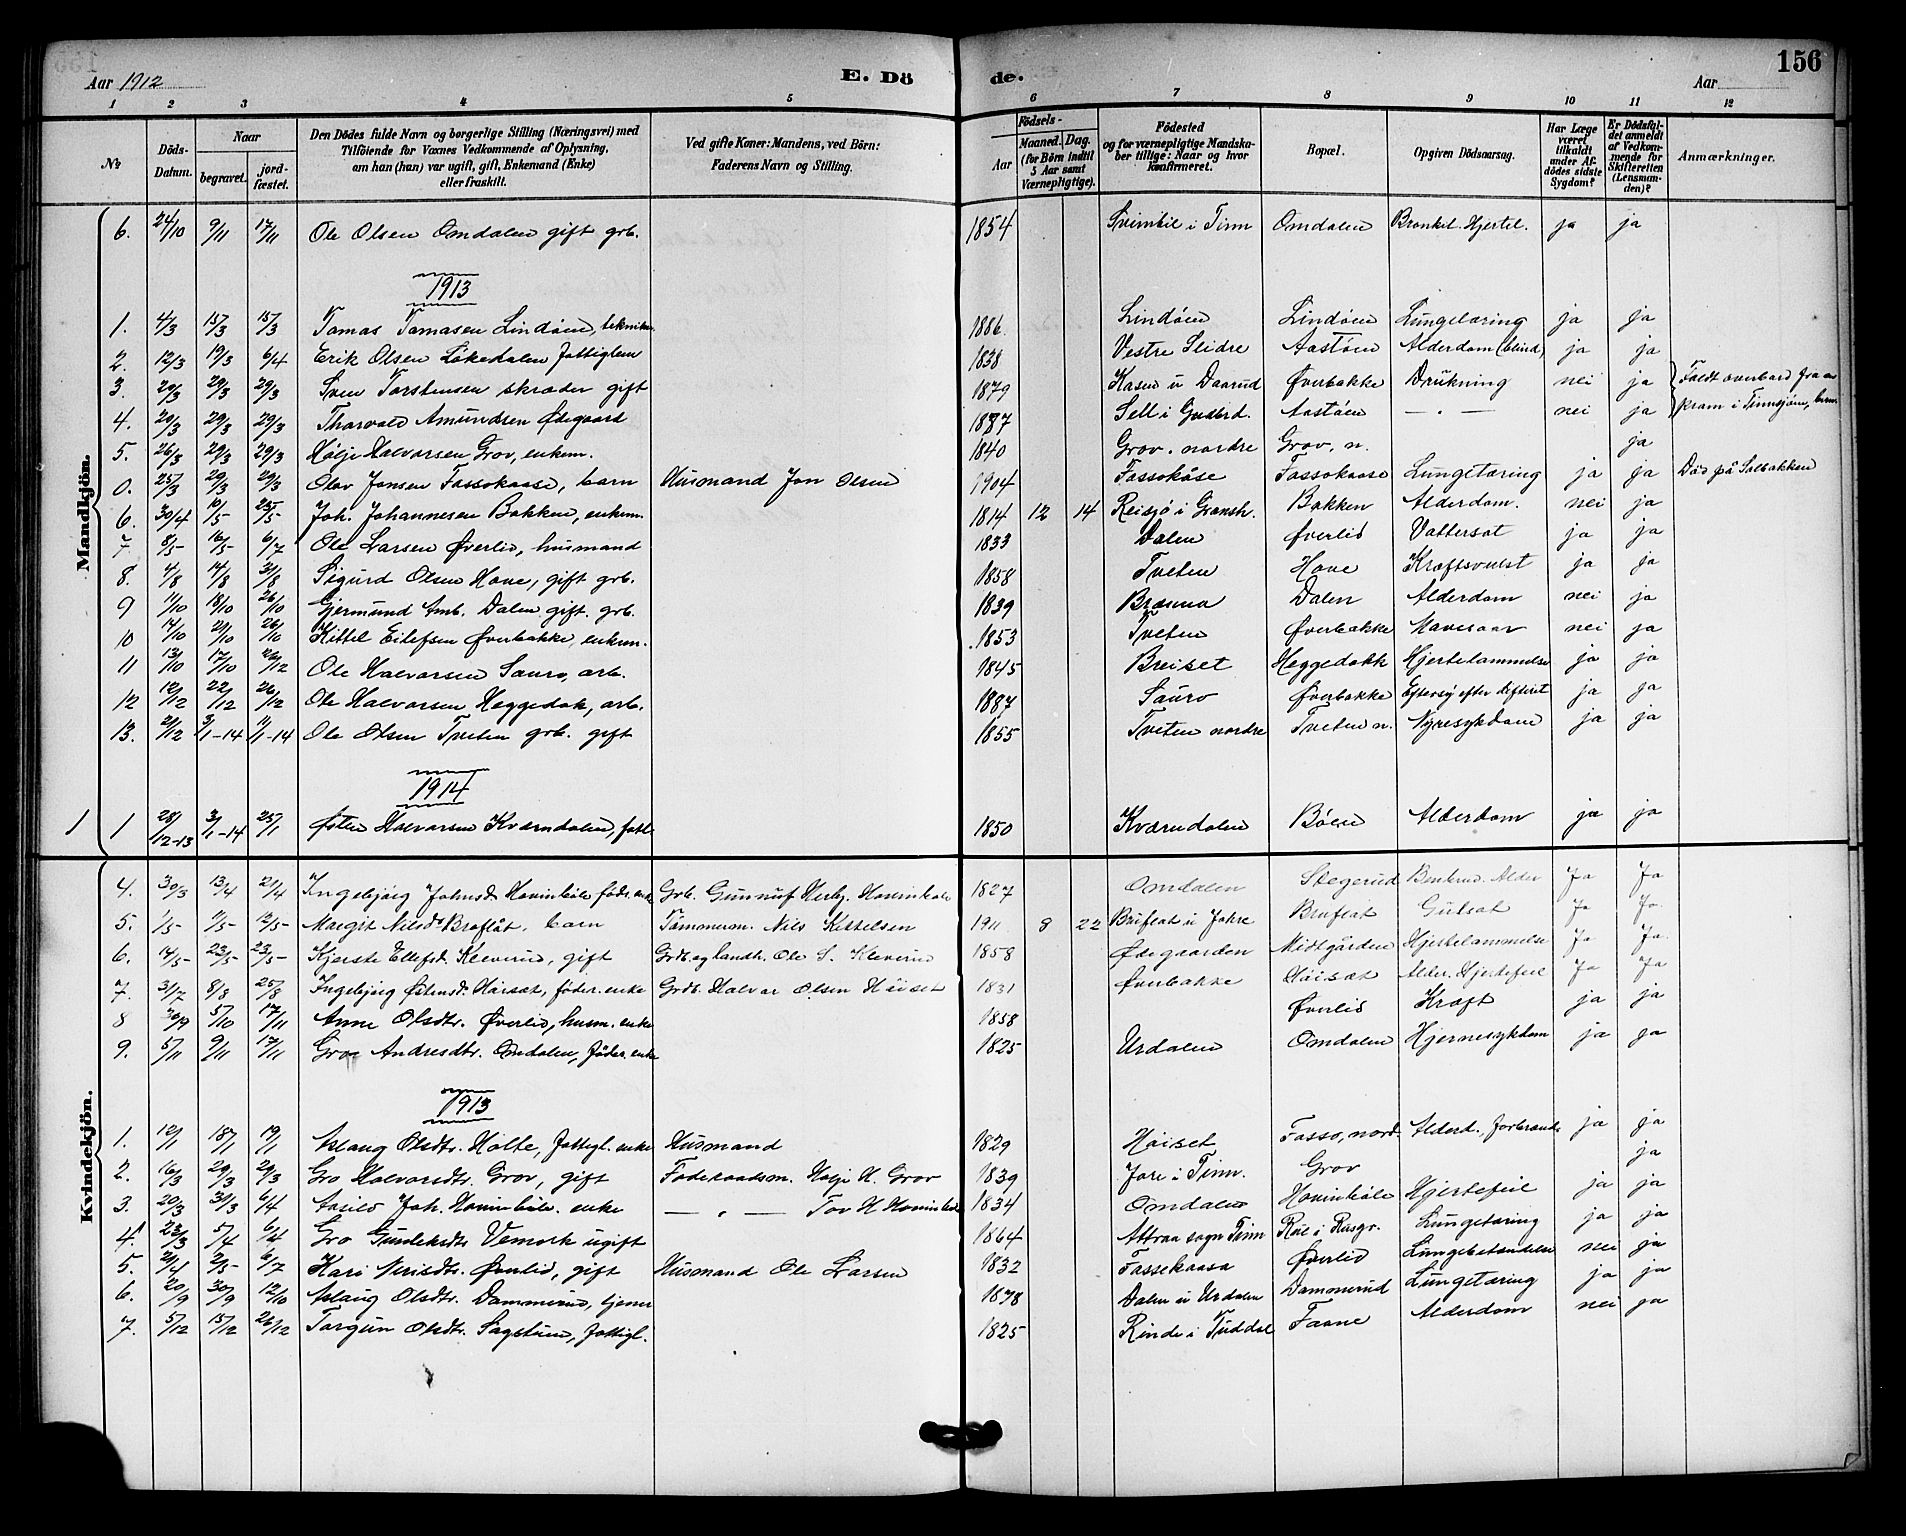 Aar 1912 E. Dö de. Aar 156
1 2 3 4 5 6 7 8 9 10 11 12
№ Döds-Datum. Naar begravet. jord-fæstet. Den Dödes fulde Navn og borgerlige Stilling (Næringsvei) med Tilföiende for Voxnes Vedkommende af Oplysning, om han (hun) var ugift, gift, Enkemand (Enke) eller fraskilt. Ved gifte Koner: Mandens, ved Börn: Faderens Navn og Stilling. Födsels- Aar Maaned. Dag. (for Börn indtil 5 Aar samt Værnepligtige). Födested og for værnepligtige Mandskaber tillige: Naar og hvor konfirmeret. Bopæl. Opgiven Dödsaarsag. Har Læge været tilkaldt under Afdödes sidste Sygdom? Er Dödsfaldet anmeldt af Vedkommende for Skifteretten (Lensmanden)? Anmærkninger.
Mandkjön.
6. 24/10 9/11 17/11 Ole Olsen Omdalen gift grb. 1854 i Tinn Omdalen Bronkit. Hjertel. ja ja
1913
1. 4/3 15/3 15/3 Tomas Tomasen Lindöen, 1886 Lindöen Lindöen Lungetæring ja ja
2. 12/3 19/3 6/4 Erik Olsen Lökedalen fattiglem 1838 Vestre Slidre Aastöen Alderdom (blind) ja ja
3. 20/3 29/3 29/3 Sven Torstensen skræder gift 1879 Kasen u Daarud Överbakke Drukning nei ja Faldt overbord fra en
4. 20/3 29/3 29/3 Thorvald Amundsen Ødegaard 1887 Sell i Gudbrd. Aastöen — " — nei ja pram i Tinnsjöen,
5. 26/3 29/3 29/3 Hölje Halvorsen Grov, enkem. 1840 Grov. nordre Grov, n. ja
0. 25/3 29/3 29/3 Olav Jonsen Fossokaase, barn Husmand Jon Olsen 1904 Fossokåse Fossokaase Lungetæring ja ja Död på Solbakken
6. 30/4 10/5 25/5 Joh. Johannesen Bakken, enkem. 1814 12 14 Reisjö i Gransh. Bakken Alderdom. nei ja
7 8/5 16/5 6/7 Ole Larsen Överlid, husmand 1833 Dalen Överlid Vattersot ja ja
8. 4/8 14/8 31/8 Sigurd Olsen Hove, gift grb. 1858 Tveten Hove Kræftsvulst ja ja
9 11/10 18/10 26/10 Gjermund Amb. Dalen gift. grb. 1839 Dalen Alderdom nei ja
10 14/10 21/10 26/10 Kittel Eilefsen Överbakke, enkem. 1853 Tveten Överbakke Mavesaar nei ja
11 13/10 17/10 26/12 Ole Halvorsen Sauro, arb. 1845 Breiset Heggedokk Hjertelammelse ja ja
12 12/12 22/12 26/12 Ole Halvorsen Heggedok, arb. 1887 Sauro Överbakke Eftersy efter difterit ja ja
13. 21/12 3/1-14 11/1-14 Ole Olsen Tveten grb. gift 1855 Tveten nordre Tveten n. Nyresykdom ja ja
1914
1 1 28/12-13 3/1-14 25/1 Østen Halvorsen Kværndalen, 1850 Kværndalen Böen Alderdom ja ja
Kvindekjön.
4. 30/3 13/4 21/4 Ingebjörg Johnsd. Hovinböle föder. enke Grb. Gunnuf Hovinböle 1827 Omdalen Stegerud Benbrud. Alder Ja Ja
5. 1/5 11/5 12/5 Margit Nilsd. Braflåt, barn Tömmerm. Nils Kittelsen 1911 8 22 Bruflat u Johre Bruflat Gulsot Ja Ja
6. 14/5 23/5 23/5 Kjerste Ellefsd. Kleverud, gift Grdb. og landh. Ole S. Kleverud 1858 Ødegaarden Midtgården Hjertelammelse Ja Ja
7. 31/7 8/8 25/8 Ingebjörg Østensd. Höisæt, föder. enke Grdb. Halvor Olsen Höiset 1831 Överbakke Höisæt Alder. Hjertefeil Ja Ja
8 30/9 5/10 17/11 Anne Olsdtr. Överlid, husm. enke 1858 Överlid Kræft ja ja
9. 5/11 9/11 17/11 Gro Andresdtr. Omdalen, föder. enke 1825 Urdalen Omdalen Hjernesykdom ja ja
1913
1. 12/1 18/1 19/1 Aslaug Olsdtr. Holte, fattigl. enke Husmand 1829 Höiset Fosso, nord. Alderd., forbrændt ja ja
2. 16/3 29/3 29/3 Gro Halvorsdtr. Grov, gift Föderaadsm. Hölje H. Grov 1839 Jore i Tinn. Grov ja
3. 20/3 31/3 6/4 Aasild Joh. Hovinböle. enke — " — Tov H Hovinböle 1834 Omdalen Hovinböle Hjertefeil ja ja
4. 23/3 5/4 6/4 Gro Gunleksdtr Vemork ugift 1864 Attraa sogn Tinn Rue i Lungetæring ja ja
5. 21/4 2/5 6/7 Kari Nerisdtr. Överlid, gift Husmand Ole Larsen 1832 Fossekaasa Överlid Lungebetændelse nei ja
6. 20/9 30/9 12/10 Aslaug Olsdtr. Dammerud, tjener 1878 Dalen u Urdalen Dammerud Lungetæring ja ja
7. 5/12 15/12 26/12 Torgun Olsdtr. Sagstuen, fattigl. 1825 Rinde i Tuddal Faane Alderdom nei ja